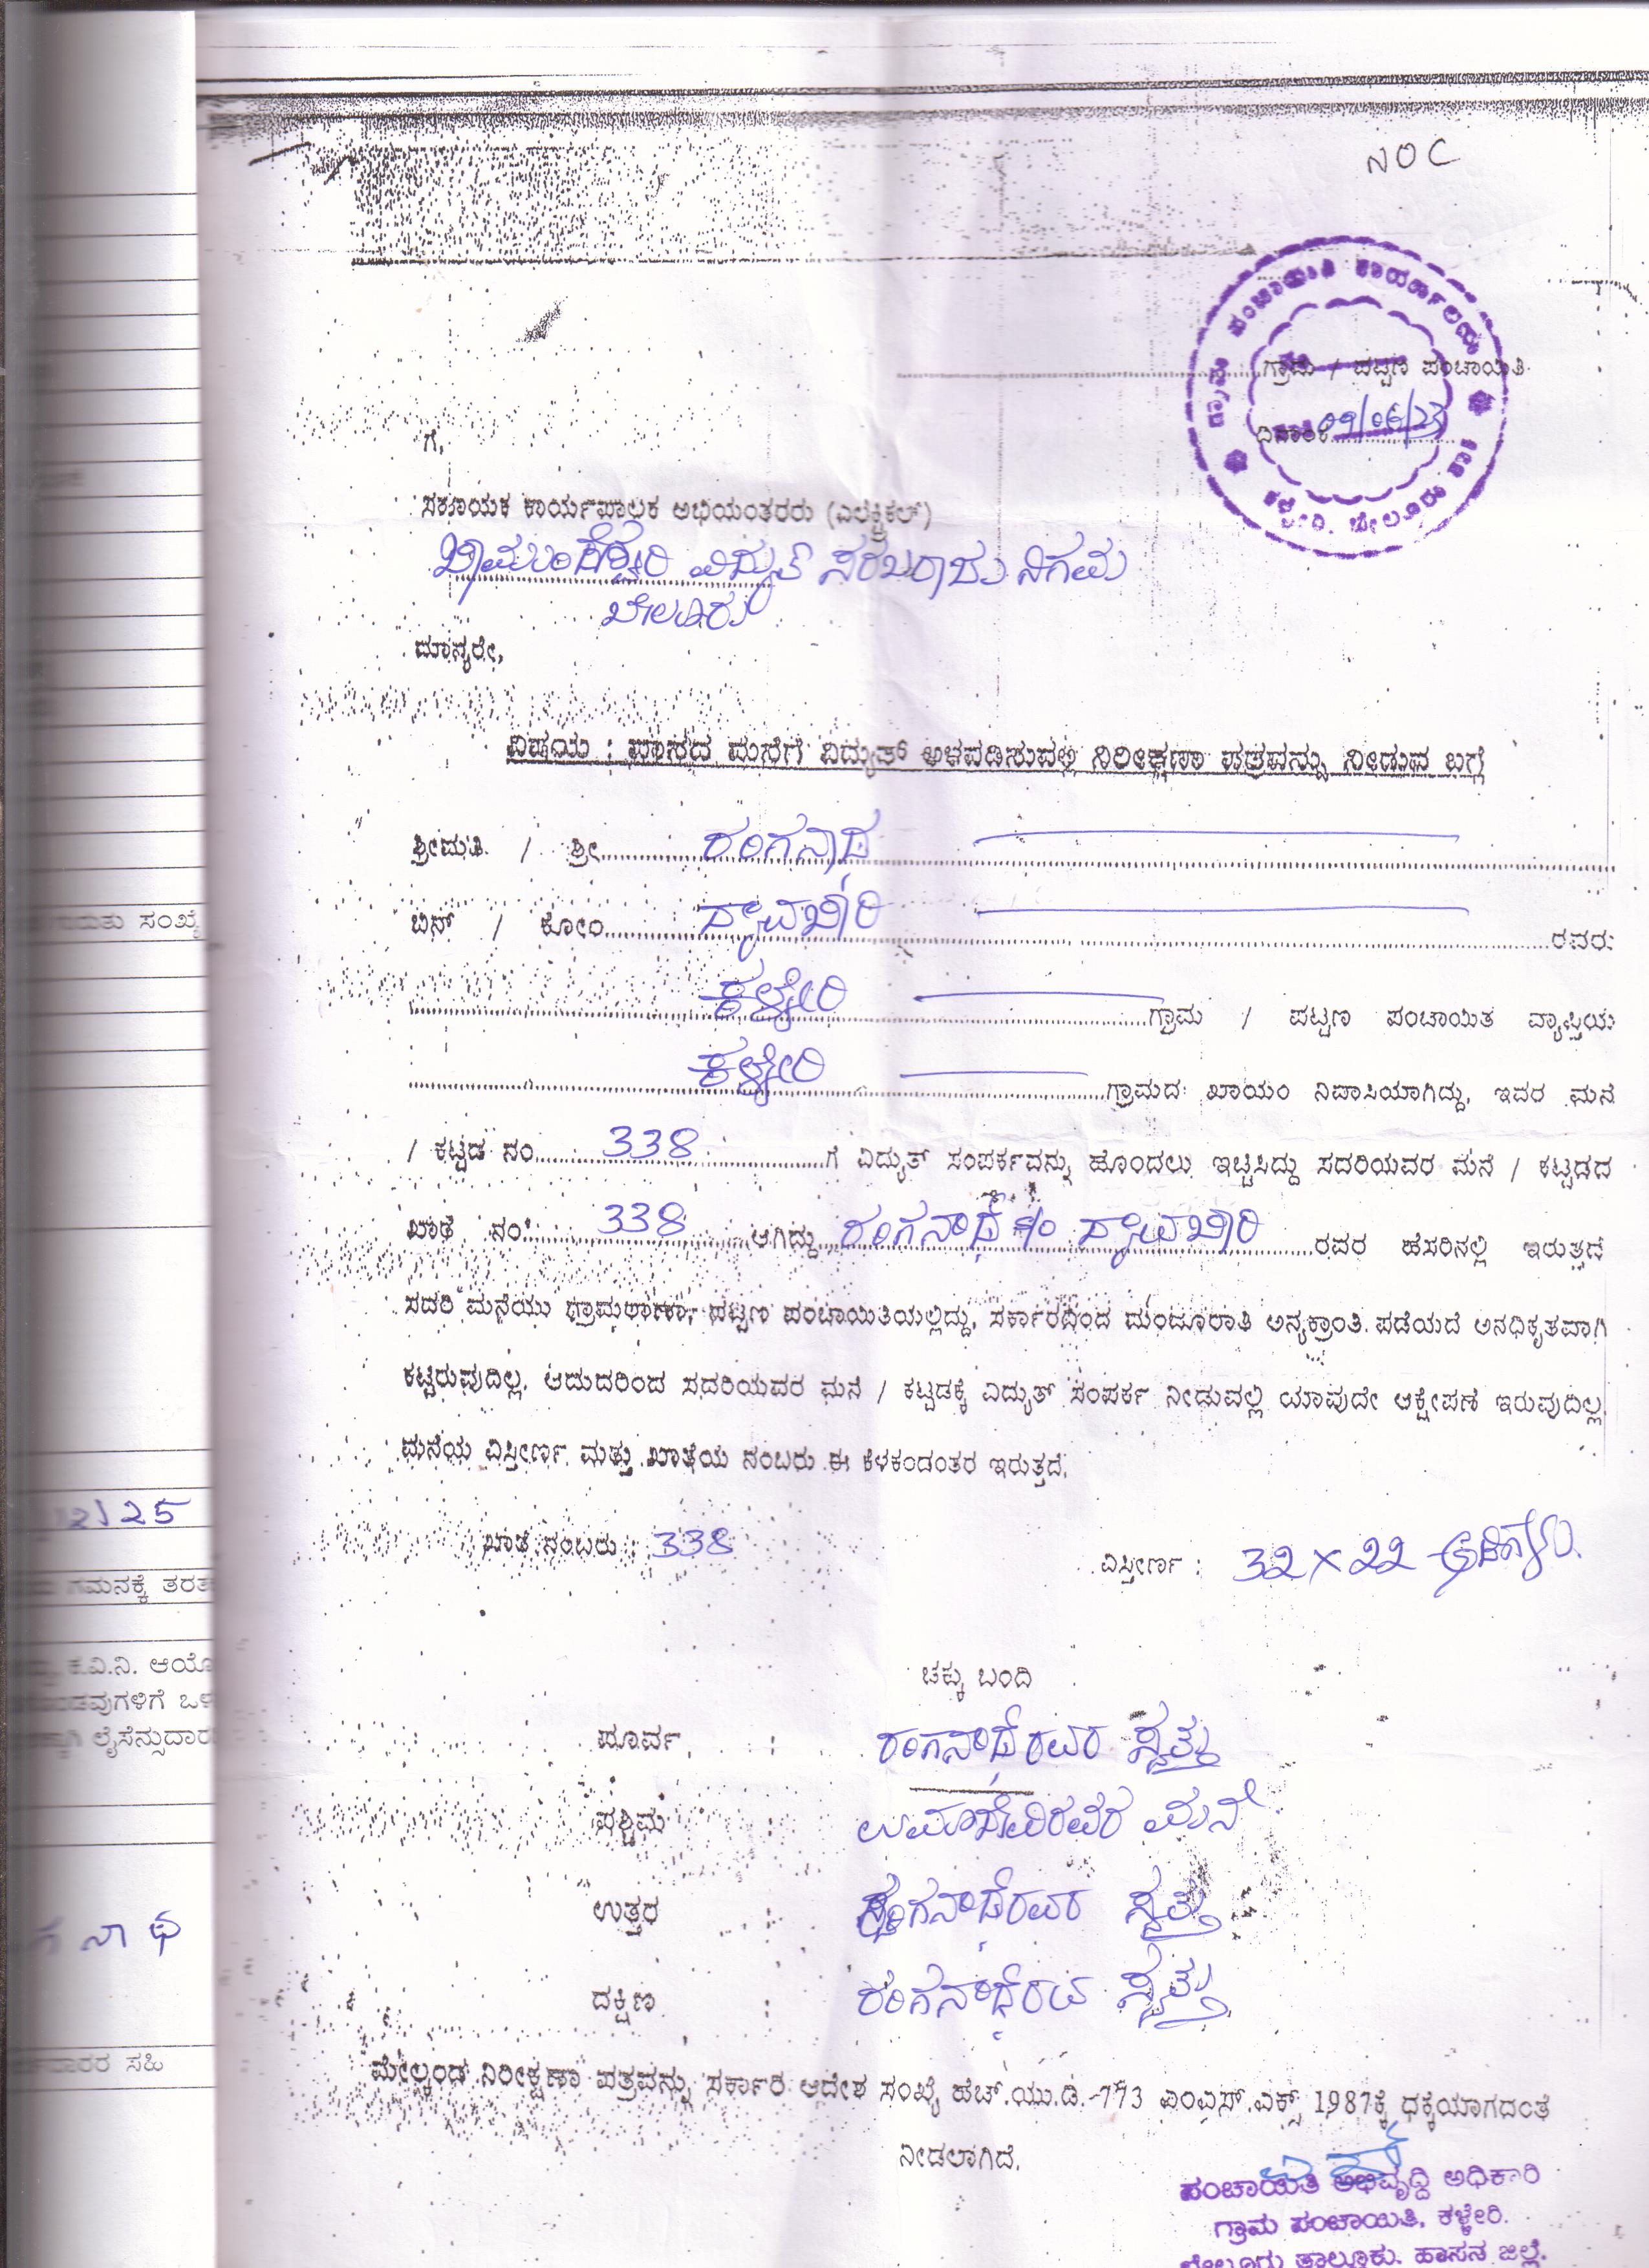 NOC
ಗ್ರಾಮ ಪಂಚಾಯಿತಿ ಕಾರ್ಯಾಲಯ
ಗ್ರಾಮ / ಪಟ್ಟಣ ಪಂಚಾಯಿತಿ
ದಿನಾಂಕ 09/06/23
ಗೆ,
ಸಹಾಯಕ ಕಾರ್ಯಪಾಲಕ ಅಭಿಯಂತರರು (ಎಲೆಕ್ಟ್ರಿಕಲ್)
ಚಾಮುಂಡೇಶ್ವರಿ ವಿದ್ಯುತ್ ಸರಬರಾಜು ನಿಗಮ
ಬೇಲೂರು
ಮಾನ್ಯರೇ,
ವಿಷಯ : ವಾಸದ ಮನೆಗೆ ವಿದ್ಯುತ್ ಅಳವಡಿಸುವಲ್ಲಿ ನಿರೀಕ್ಷಣಾ ಪತ್ರವನ್ನು ನೀಡುವ ಬಗ್ಗೆ
ಶ್ರೀಮತಿ / ಶ್ರೀ ರಂಗನಾಥ
ಬಿನ್ / ಕೋಂ ರವರು
ಕಳ್ಳೇರಿ ಗ್ರಾಮ / ಪಟ್ಟಣ ಪಂಚಾಯಿತ ವ್ಯಾಪ್ತಿಯ
ಕಳ್ಳೇರಿ ಗ್ರಾಮದ ಖಾಯಂ ನಿವಾಸಿಯಾಗಿದ್ದು, ಇವರ ಮನೆ
/ ಕಟ್ಟಡ ನಂ 338 ಗೆ ವಿದ್ಯುತ್ ಸಂಪರ್ಕವನ್ನು ಹೊಂದಲು ಇಚ್ಚಿಸಿದ್ದು ಸದರಿಯವರ ಮನೆ / ಕಟ್ಟಡದ
ಖಾತೆ ನಂ 338 ಆಗಿದ್ದು ರಂಗನಾಥ s/o ರವರ ಹೆಸರಿನಲ್ಲಿ ಇರುತ್ತದೆ
ಸದರಿ ಮನೆಯು ಗ್ರಾಮಠಾಣಾ, ಪಟ್ಟಣ ಪಂಚಾಯಿತಿಯಲ್ಲಿದ್ದು, ಸರ್ಕಾರದಿಂದ ಮಂಜೂರಾತಿ ಅನ್ಯಕ್ರಾಂತಿ ಪಡೆಯದೆ ಅನಧಿಕೃತವಾಗಿ
ಕಟ್ಟಿರುವುದಿಲ್ಲ. ಆದುದರಿಂದ ಸದರಿಯವರ ಮನೆ / ಕಟ್ಟಡಕ್ಕೆ ವಿದ್ಯುತ್ ಸಂಪರ್ಕ ನೀಡುವಲ್ಲಿ ಯಾವುದೇ ಆಕ್ಷೇಪಣೆ ಇರುವುದಿಲ್ಲ.
ಮನೆಯ ವಿಸ್ತೀರ್ಣ ಮತ್ತು ಖಾತೆಯ ನಂಬರು ಈ ಕೆಳಕಂಡಂತರ ಇರುತ್ತದೆ.
ಖಾತೆ ನಂಬರು : 338
ವಿಸ್ತೀರ್ಣ : 32 × 22
ಚಕ್ಕು ಬಂದಿ
ಪೂರ್ವ : ರಂಗನಾಥರವರ ಸ್ವತ್ತು
ಪಶ್ಚಿಮ : ಮನೆ
ಉತ್ತರ : ರಂಗನಾಥರವರ ಸ್ವತ್ತು
ದಕ್ಷಿಣ : ರಂಗನಾಥರವ ಸ್ವತ್ತು
ಮೇಲ್ಕಂಡ ನಿರೀಕ್ಷಣಾ ಪತ್ರವನ್ನು ಸರ್ಕಾರಿ ಆದೇಶ ಸಂಖ್ಯೆ ಹೆಚ್.ಯು.ಡಿ.-773 ಎಂಎಸ್.ಎಕ್ಸ್ 1987ಕ್ಕೆ ಧಕ್ಕೆಯಾಗದಂತೆ
ನೀಡಲಾಗಿದೆ.
ಪಂಚಾಯತಿ ಅಭಿವೃದ್ಧಿ ಅಧಿಕಾರಿ
ಗ್ರಾಮ ಪಂಚಾಯಿತಿ, ಕಳ್ಳೇರಿ.
ಬೇಲೂರು ತಾಲ್ಲೂಕು, ಹಾಸನ ಜಿಲ್ಲೆ.
ಸಂಖ್ಯೆ
2/25
ಗಮನಕ್ಕೆ
ಕ.ವಿ.ನಿ.
ನಾಥ
ಸಹಿ